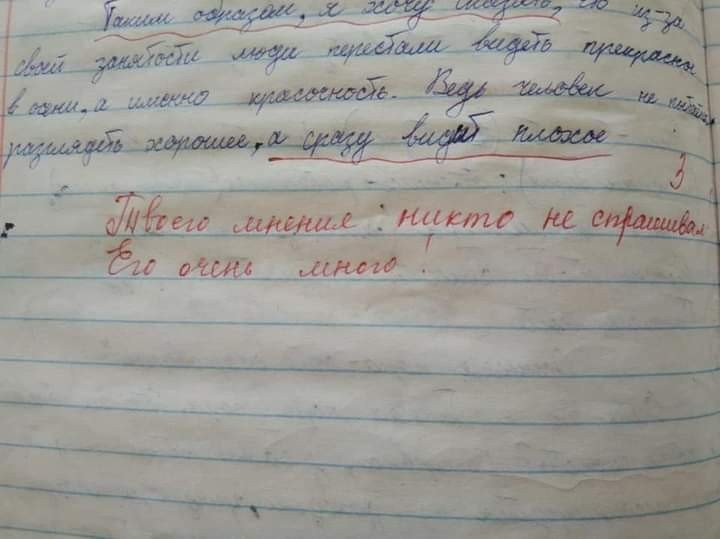 Таким образом, я хочу сказать, что из-за
своей занятости люди перестали видеть прекрасное
в осени, а именно красочность. Ведь человек не пытается
разглядеть хорошее, а сразу видит плохое
3
Твоего мнения никто не спрашивал
Его очень много!